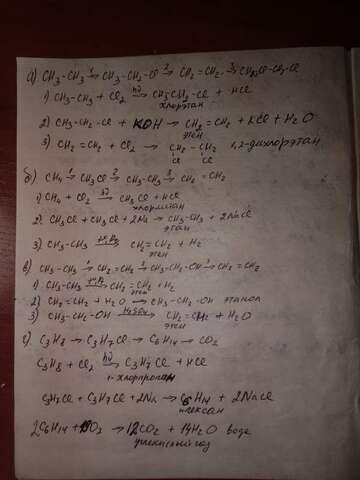 а) CH₃-CH₃ →¹ CH₃-CH₂-Cl →² CH₂=CH₂ →³ CH₂Cl-CH₂-Cl
1) CH₃-CH₃ + Cl₂ →hν CH₃CH₂-Cl + HCl
хлорэтан
2) CH₃-CH₂-Cl + KOH → CH₂=CH₂ + KCl + H₂O
этен
3) CH₂=CH₂ + Cl₂ → CH₂-CH₂ 1,2-дихлорэтан
Cl Cl
б) CH₄ →¹ CH₃Cl →² CH₃-CH₃ →³ CH₂=CH₂
1) CH₄ + Cl₂ →hν CH₃Cl + HCl
хлорметан
2) CH₃Cl + CH₃Cl + 2Na → CH₃-CH₃ + 2NaCl
этан
3) CH₃-CH₃ → CH₂=CH₂ + H₂
этен
в) CH₃-CH₃ →¹ CH₂=CH₂ →² CH₃-CH₂-OH →³ CH₂=CH₂
1) CH₃-CH₃ → CH₂=CH₂ + H₂
этен
2) CH₂=CH₂ + H₂O → CH₃-CH₂-OH этанол
3) CH₃-CH₂-OH →H₂SO₄ CH₂=CH₂ + H₂O
этен
г) C₃H₈ → C₃H₇Cl → C₆H₁₄ → CO₂
C₃H₈ + Cl₂ →hν C₃H₇Cl + HCl
1-хлорпропан
C₃H₇Cl + C₃H₇Cl + 2Na → C₆H₁₄ + 2NaCl
н-гексан
2C₆H₁₄ + 19O₂ → 12CO₂ + 14H₂O вода
углекислый газ